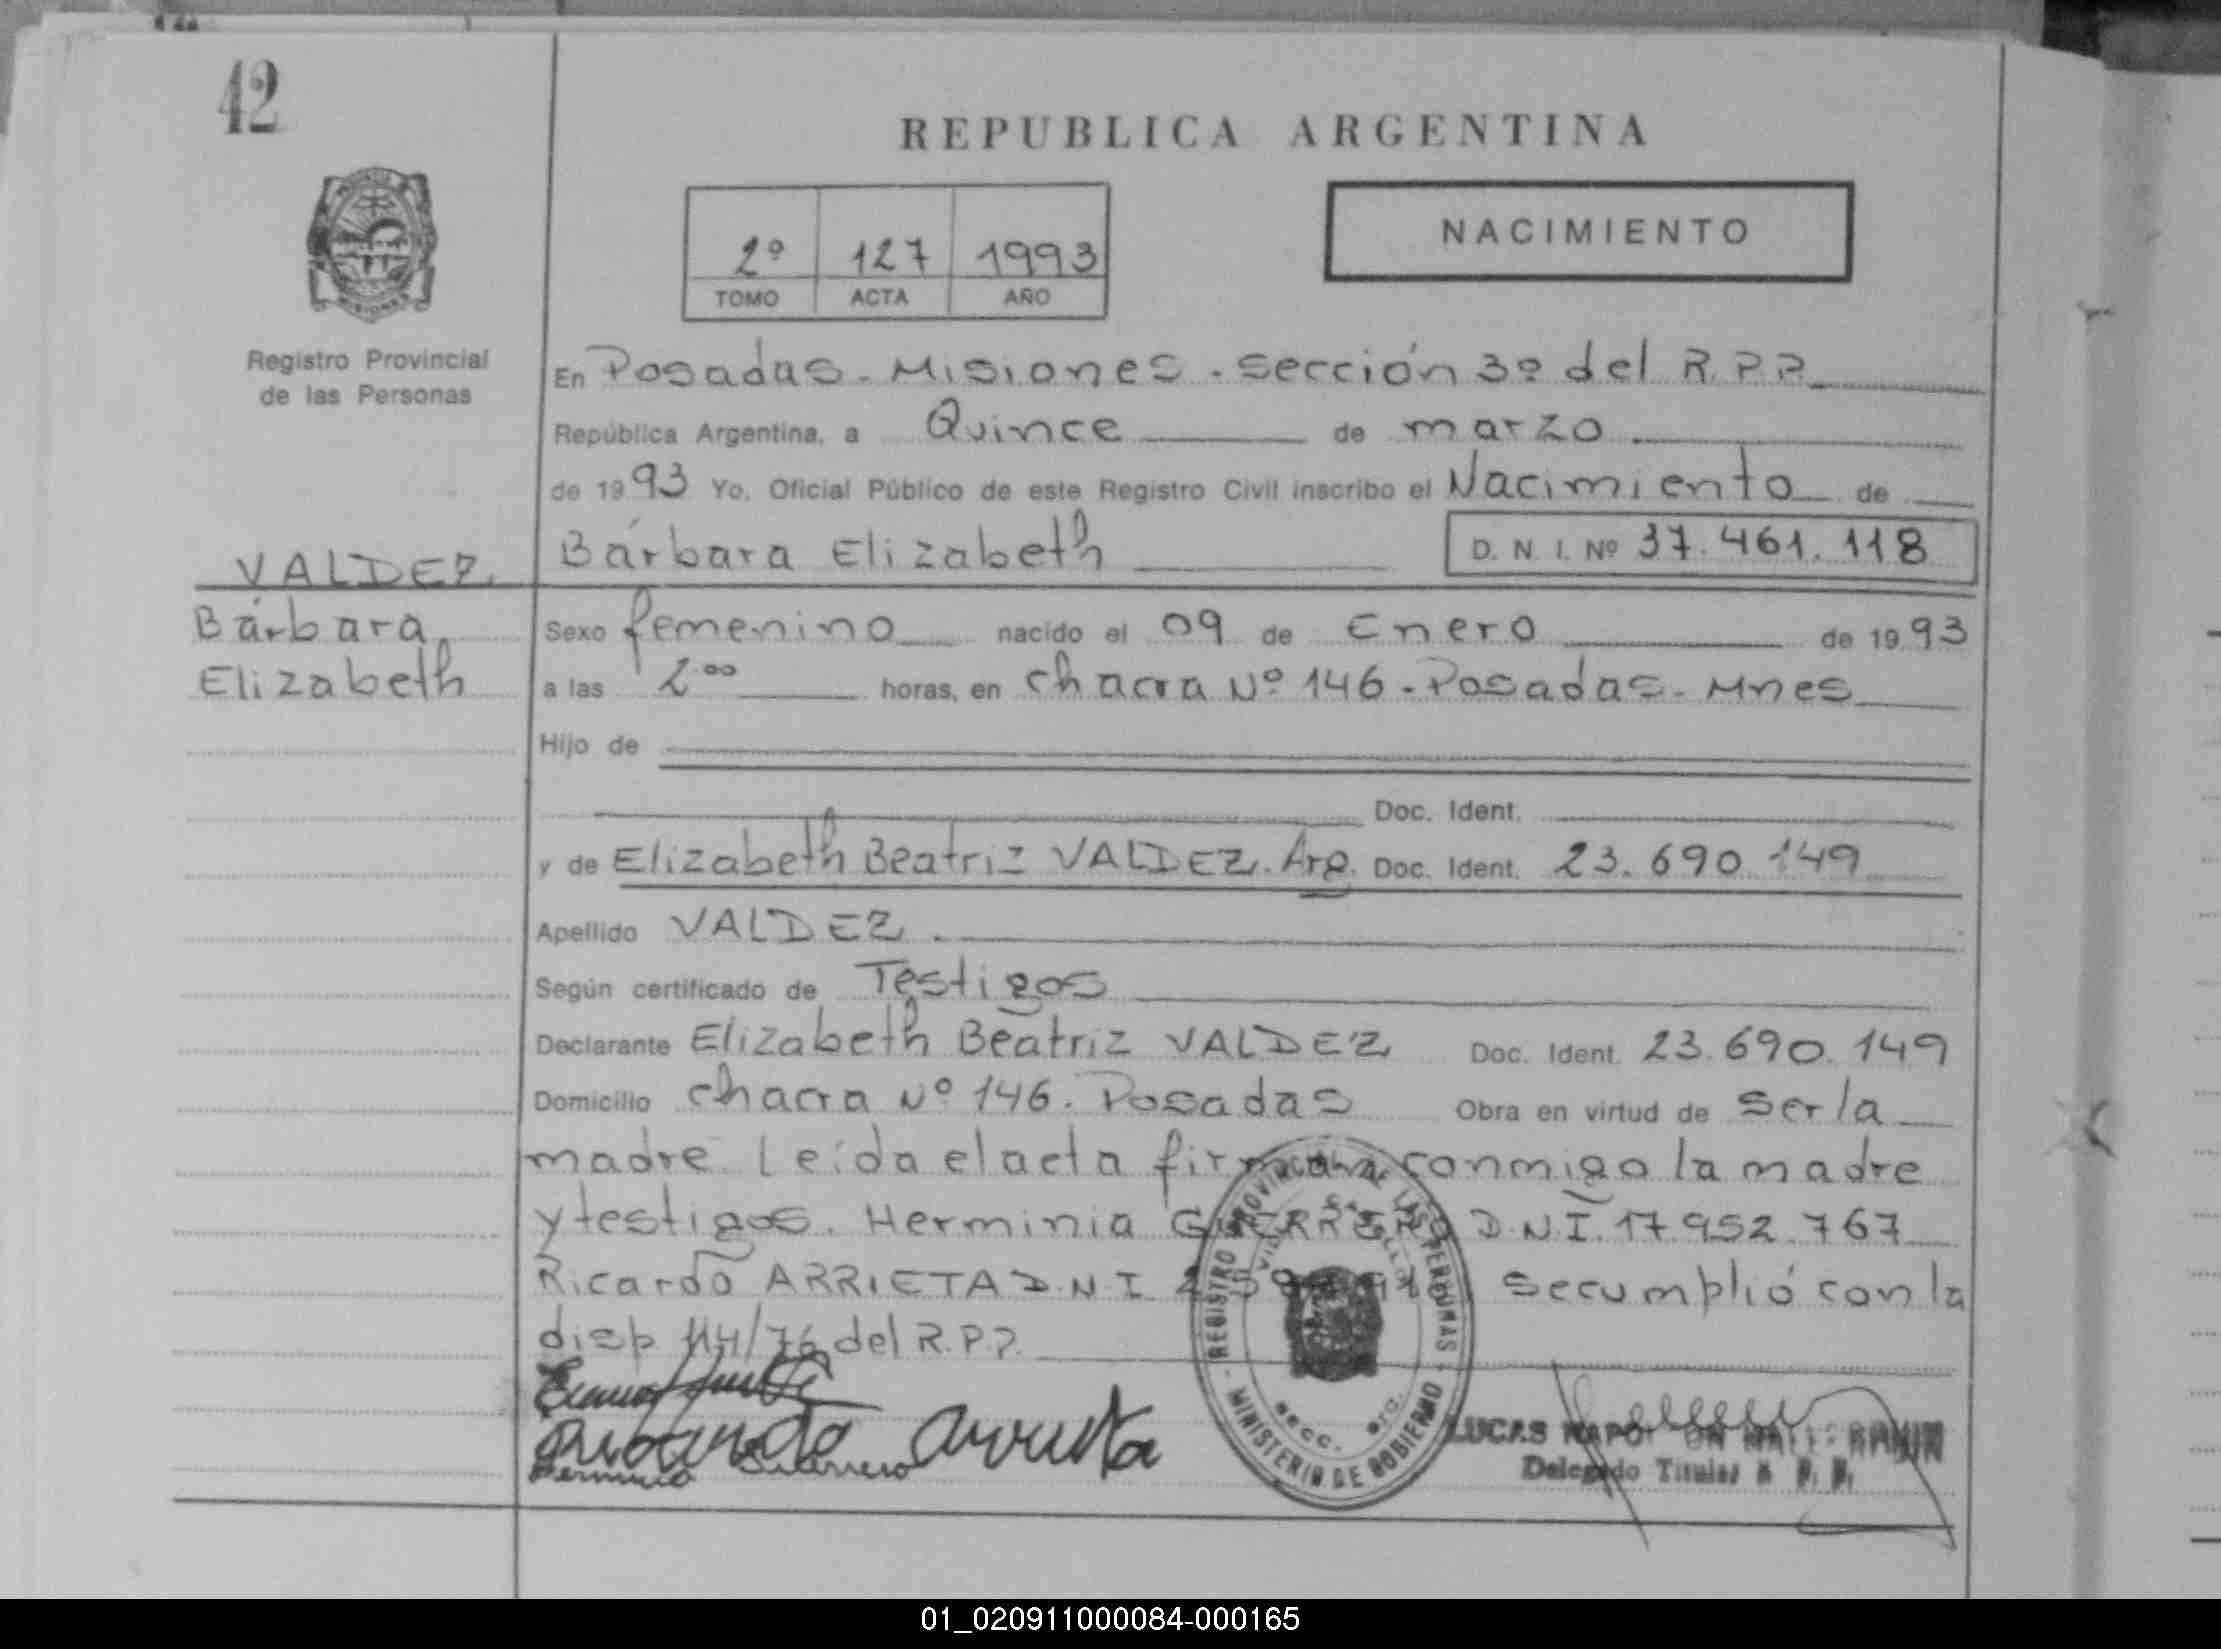 42
REPUBLICA ARGENTINA
2º 127 1993
TOMO ACTA AÑO
NACIMIENTO
Registro Provincial
de las Personas
En Posadas - Misiones - sección 3º del R.P.P.
República Argentina, a Quince de marzo
de 1993 Yo, Oficial Público de este Registro Civil inscribo el Nacimiento de
Bárbara Elizabeth
D. N. I. Nº 37.461.118
VALDEZ
Bárbara
Elizabeth
Sexo femenino nacido el 09 de Enero de 1993
a las 2.00 horas, en chacra Nº 146 - Posadas - Mnes
Hijo de
Doc. Ident.
y de Elizabeth Beatriz VALDEZ. Arg. Doc. Ident. 23.690.149
Apellido VALDEZ.
Según certificado de Testigos
Declarante Elizabeth Beatriz VALDEZ Doc. Ident. 23.690.149
Domicilio chacra Nº 146. Posadas Obra en virtud de ser la
madre. Leída el acta firman conmigo la madre
y testigos. Herminia GUERRERO D.N.I. 17.952.767
Ricardo ARRIETA D.N.I. se cumplió con la
disp. 114/76 del R.P.P.
Herminia Guerrero
REGISTRO PROVINCIAL DE LAS PERSONAS
MINISTERIO DE GOBIERNO
LUCAS
Delegado Titular
01_020911000084-000165